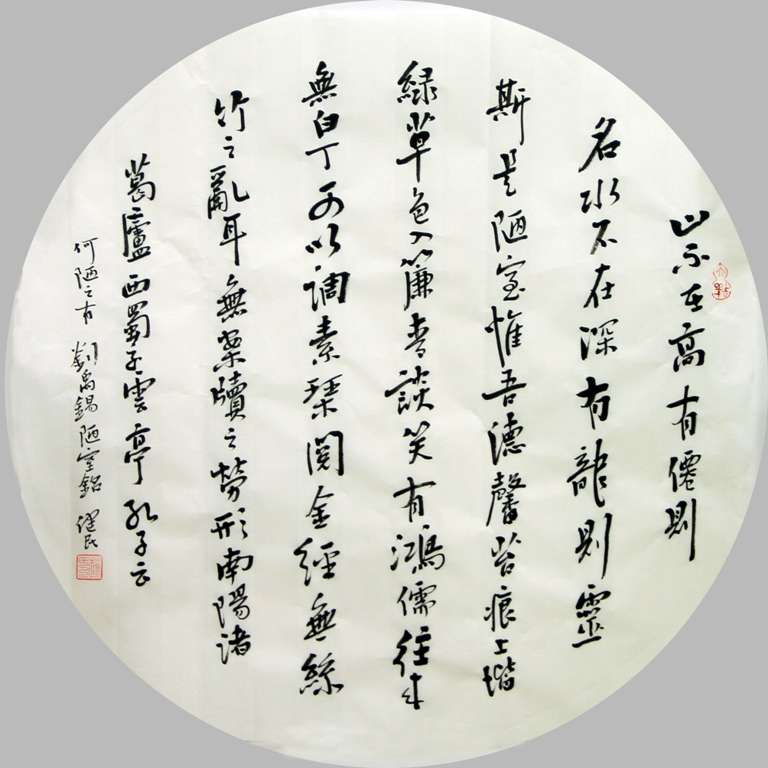 山不在高有僊則
名水不在深有龍則靈
斯是陋室惟吾德馨苔痕上堦
綠草色入簾青談笑有鴻儒往來
無白丁可以調素琴閱金經無絲
竹之亂耳無案牘之勞形南陽諸
葛廬西蜀子雲亭孔子云
何陋之有 劉禹錫陋室銘